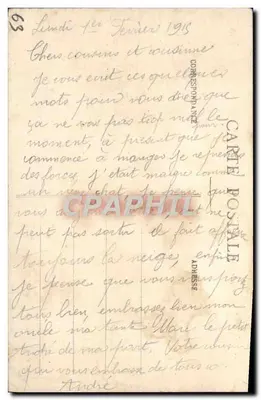 63
Lundi 1er Fevrier 1915
Chers cousins et cousine
Je vous ecrit ces quelques
mots pour vous dire que
ça ne vas pas trop mal le
moment, à present que je
commence à manger je reprends
des forces, j'était maigre comme
un chat, je pense que
vous
peut pas sortir
toujours la neige, enfin
je pense que vous
tous bien, embrasser bien mon
oncle ma tante Marie le petit
de ma part, Votre cousin
qui vous embrasse de tous
André
CARTE POSTALE
CORRESPONDANCE
ADRESSE
CPAPHIL